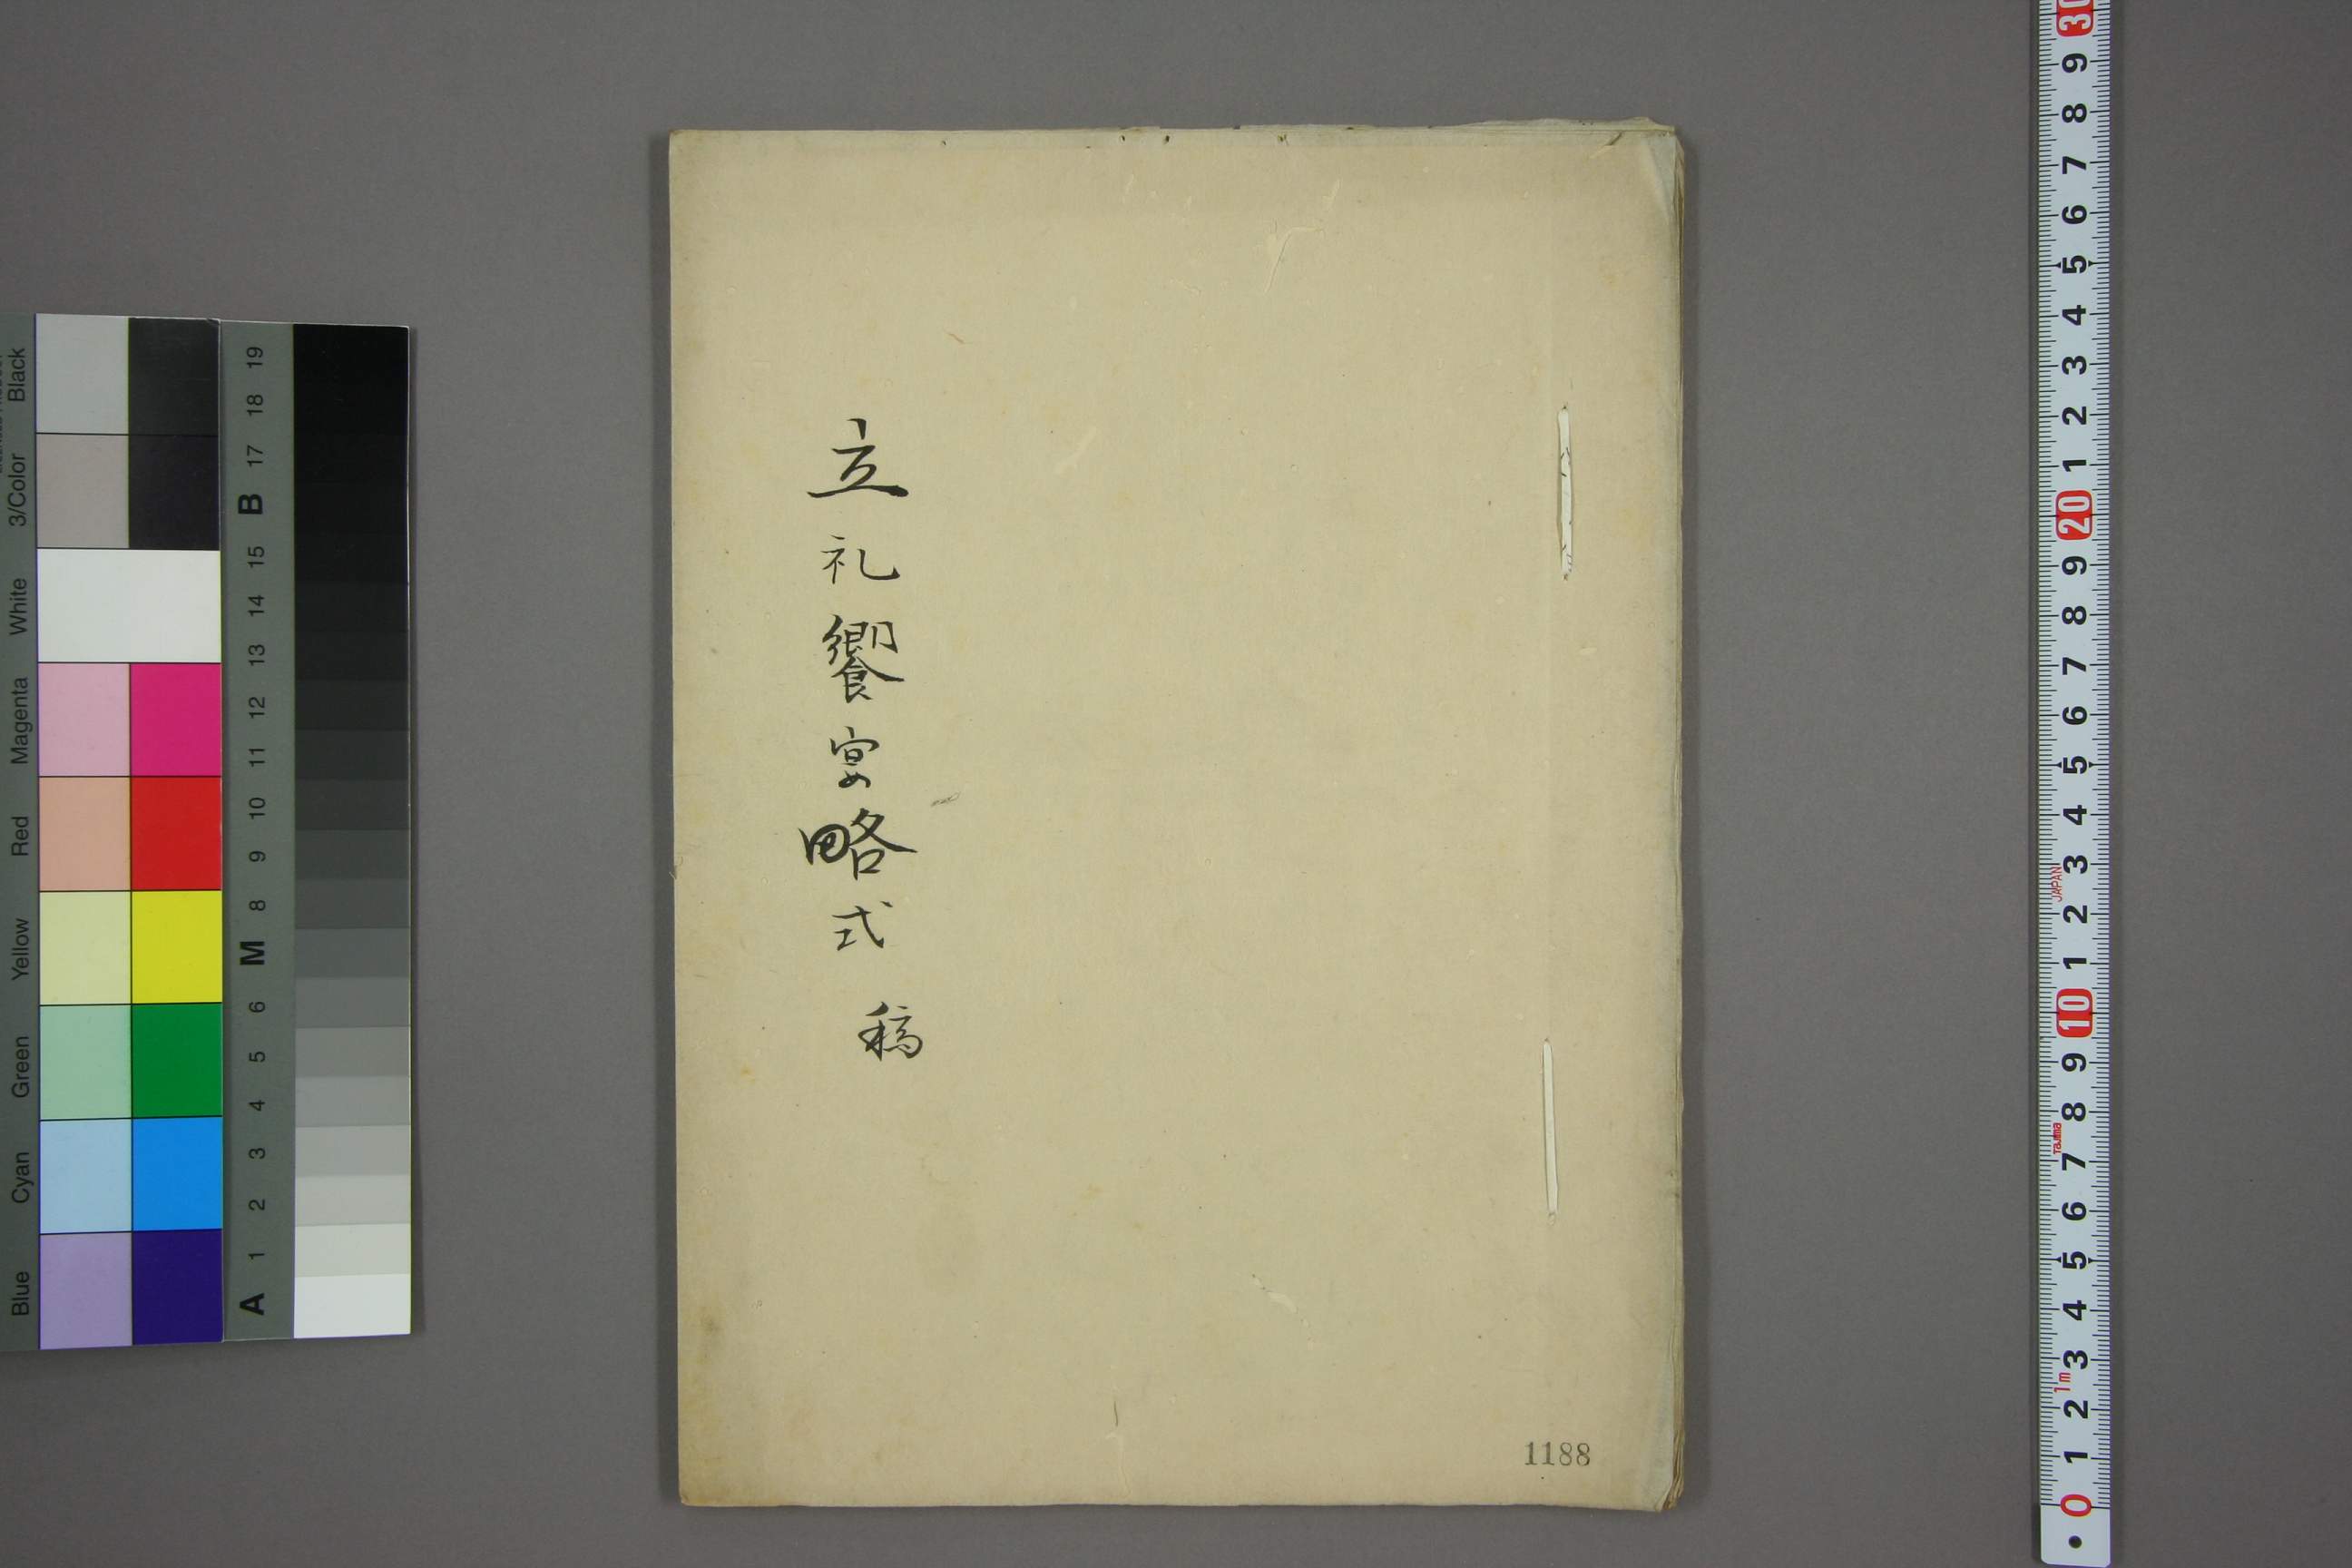 立礼饗宴略式 稿
1188
Black
3/Color
White
Magenta
Red
Yellow
Green
Cyan
Blue
19
18
17
B
15
14
13
12
11
10
9
8
M
6
5
4
3
2
1
A
30
9
8
7
6
5
4
3
2
1
20
9
8
7
6
5
4
3
JAPAN
2
1
10
9
8
Tajima
7
6
5
4
3
1m
2
1
0